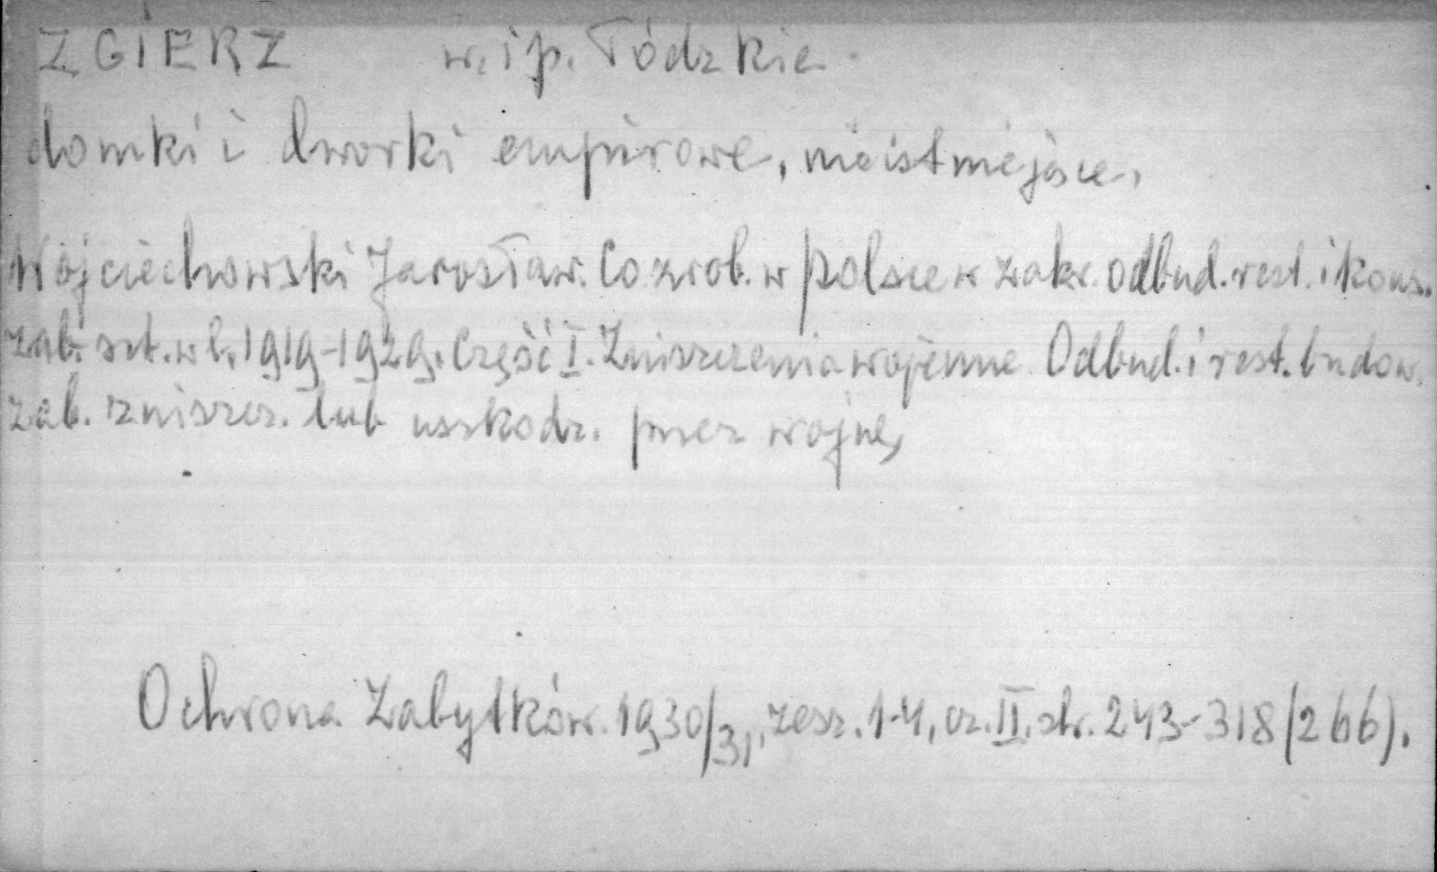 ZGIERZ w. i p. Łódzkie
domki i dworki empirowe, nieistniejące,
Wojciechowski Jarosław. Co zrob. w Polsce w zakr. odbud. rest. i kons.
zab. szt. w l. 1919-1929. Część I. Zniszczenia wojenne. Odbud. i rest. budow.
zab. zniszcz. lub uszkodz. przez wojnę,
Ochrona Zabytków. 1930/31, zesz. 1-4, cz. II, str. 243-318 (266).